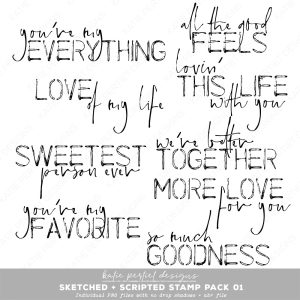 you're my
EVERYTHING
all the good
FEELS
LOVE
of my life
lovin'
THIS LIFE
with you
SWEETEST
person ever
we're better
TOGETHER
MORE LOVE
for you
you're my
FAVORITE
so much
GOODNESS
katie pertiet designs
SKETCHED + SCRIPTED STAMP PACK 01
Individual PNG files with no drop shadows + abr file